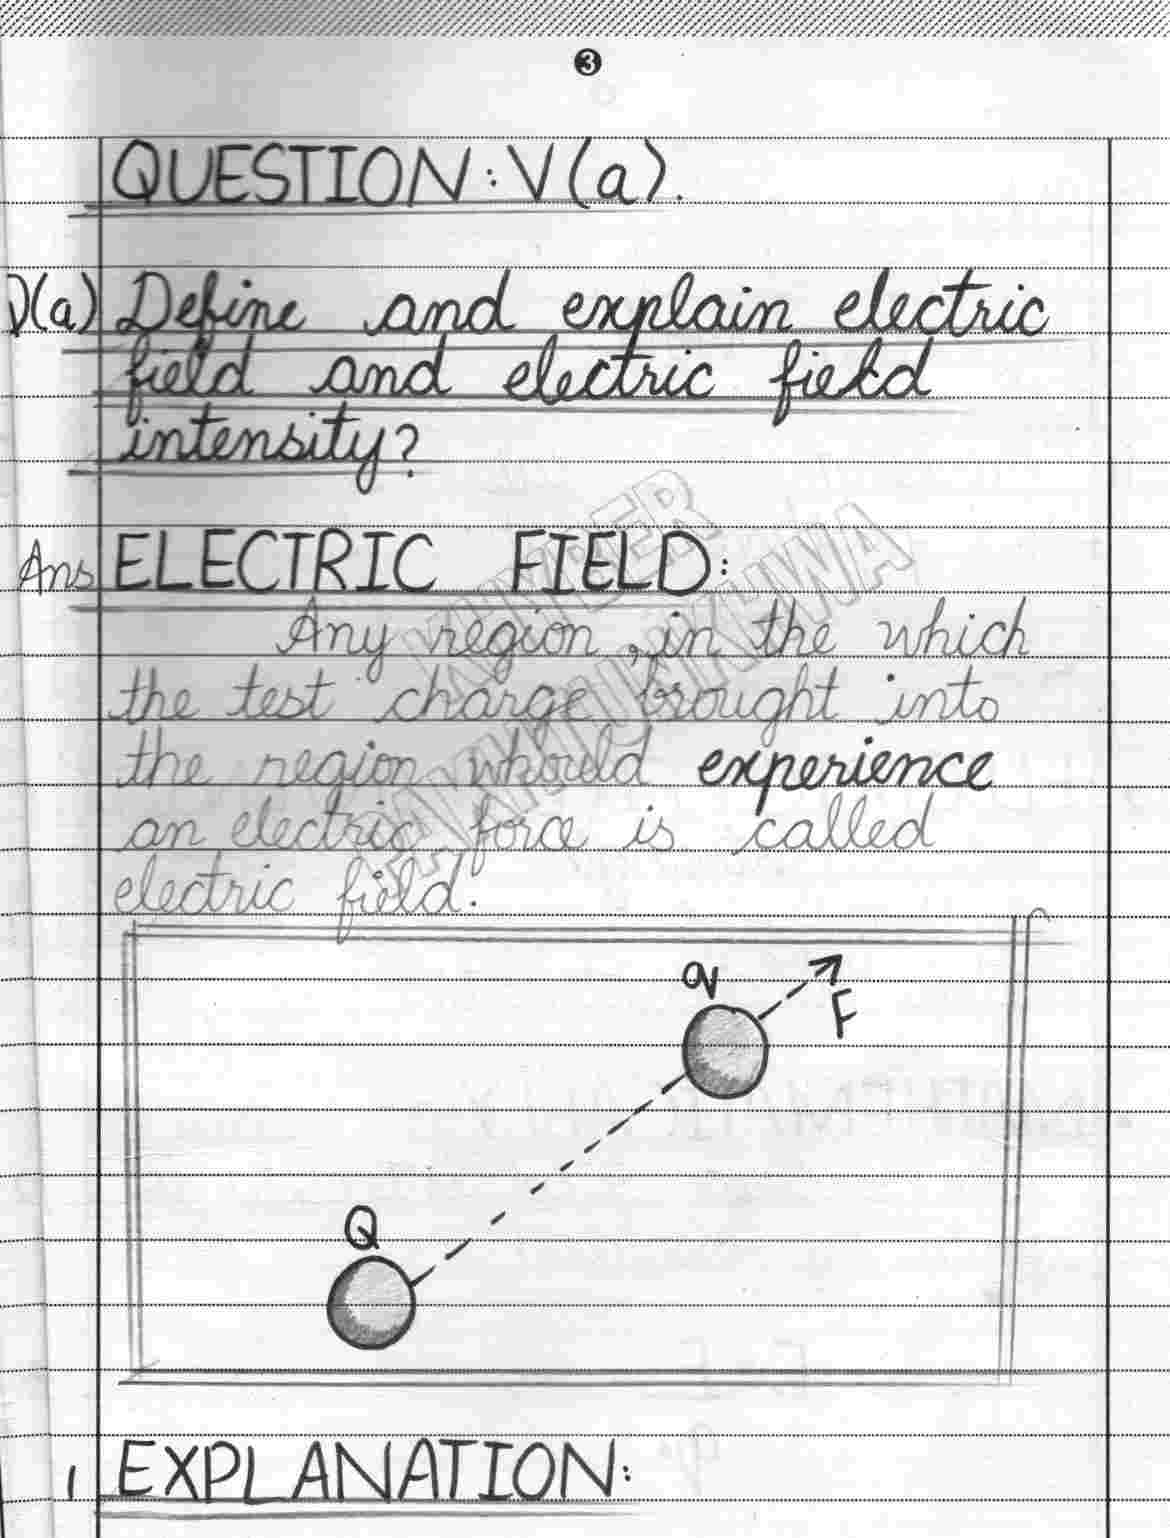 3
QUESTION: V(a).
V(a) Define and explain electric
field and electric field
intensity?
Ans ELECTRIC FIELD:
Any region, in the which
the test charge brought into
the region whould experience
an electric force is called
electric field.
q
F
Q
1 EXPLANATION:
KHYBER
PAKHTUNKHWA